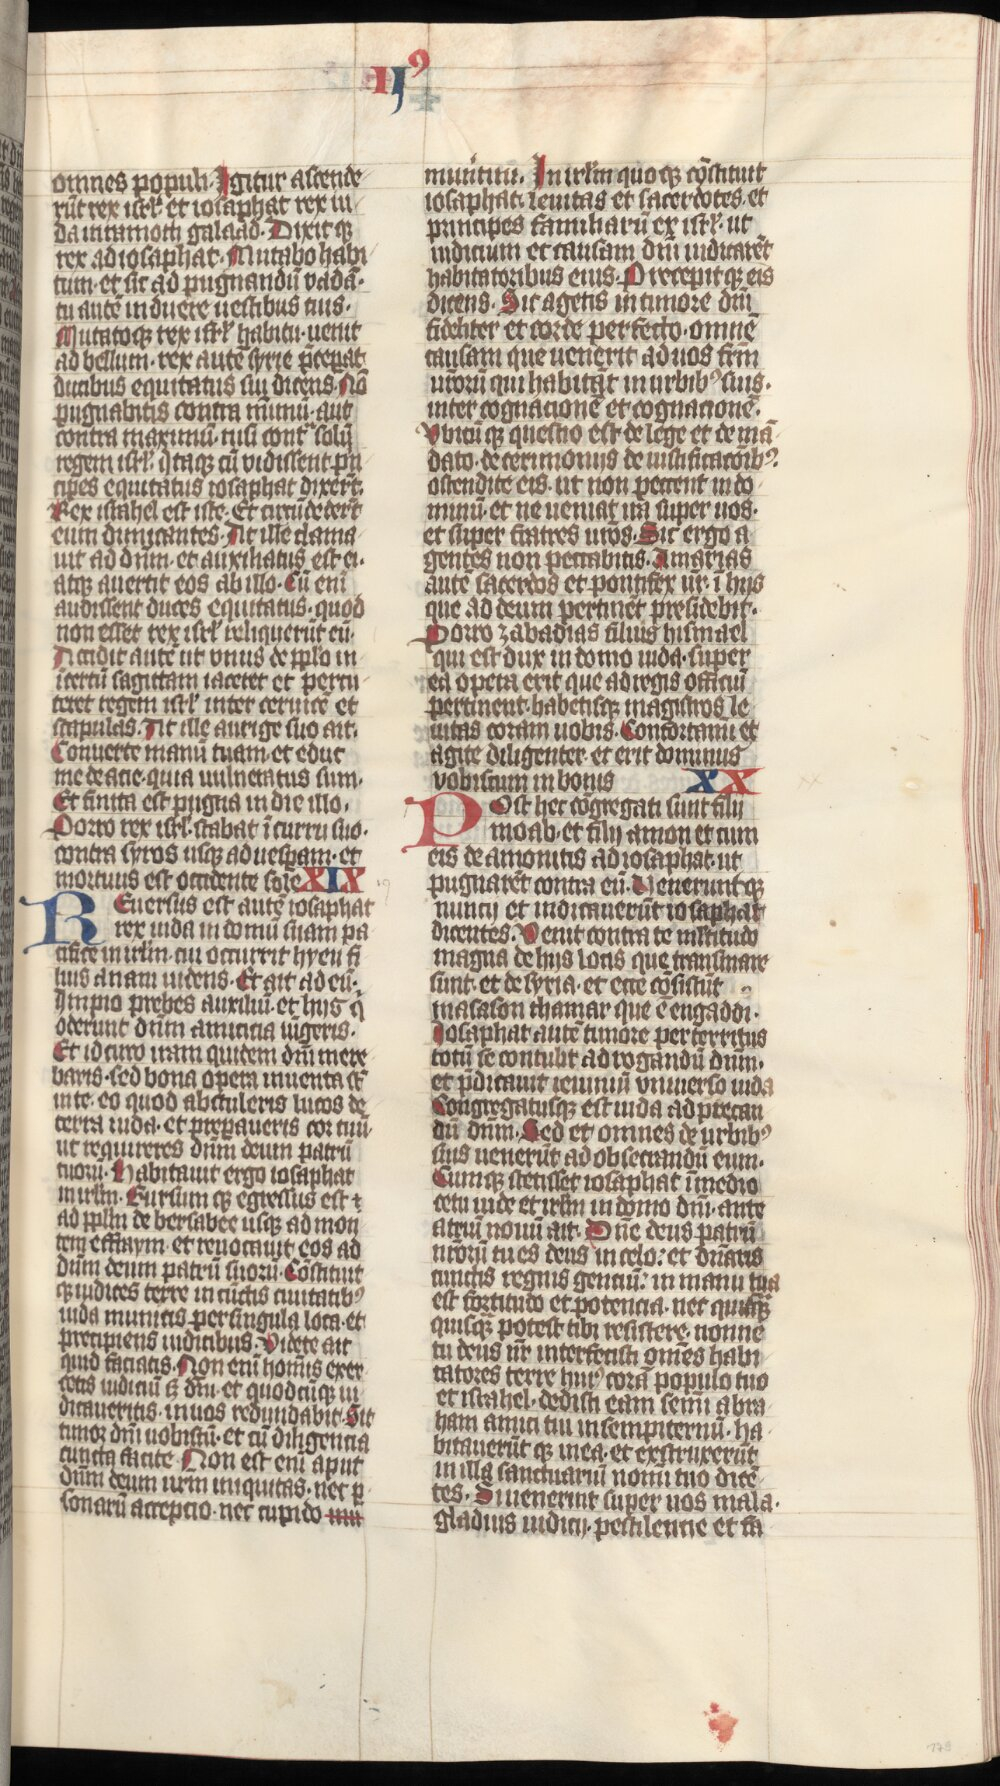 IIꝰ
omnes populi. Igitur ascende
rūt rex isrl̕ et iosaphat rex iu
da in ramoth galaad. Dixitqꝫ
rex ad iosaphat. Mutabo habi
tum et sic ad pugnandū vadā.
tu autē induere uestibus tuis.
Mutatoqꝫ rex isrl̕ habitu uenit
ad bellum. rex autē syrie p̄cepat
ducibus equitatus sui dicens. Nō
pugnabitis contra mīmū aut
contra maximū. nisi contᵃ solū
regem isrl̕. Itaqꝫ cū vidissent pⁱn
cipes equitatus iosaphat dixerūt.
Rex israhel est iste. Et circūdederūt
eum dimicantes. At ille clama
uit ad dn̄m. et auxiliatus est ei.
atqꝫ auertit eos ab illo. Cū enī
audissent duces equitatus. quod
non esset rex isrl̕ reliquerūt eū.
Accidit autē ut vnus de pp̄lo in
īcertū sagittam iaceret et percu
teret regem isrl̕ inter ceruicē et
scapulas. At ille aurige suo ait.
Conuerte manū tuam. et educ
me de acie. quia uulneratus sum.
Et finita est pugna in die illo.
Porro rex isrl̕ stabat ī curru suo.
contra syros usqꝫ ad uesꝑam. et
mortuus est occidente sole XIX
REuersus est autē iosaphat
rex iuda in domū suam pa
cifice in irl̄m. cui occurrit hyeu fi
lius anani uidens. Et ait ad eū.
Impio prebes auxiliū. et hijs qⁱ
oderunt dn̄m amicicia iūgeris.
Et idcirco iram quidem dn̄i mere
baris. sed bona opera inuenta sūt
in te. eo quod abstuleris lucos de
terra iuda. et preparaueris cor tuū
ut requireres dn̄m deum patrū
tuorū. Habitauit ergo iosaphat
in irl̄m. Rursumqꝫ egressus est ꝛ
ad pp̄lm de bersabee usqꝫ ad mon
tem effraym. et reuocauit eos ad
dn̄m deum patrū suorū. Cōstituit
qꝫ iudices terre in cūctis ciuitatibꝰ
iuda munitis per singula loca. et
precipiens iudicibus. Videte ait
quid faciatis. Non enī homīs exer
cetis iudiciū sꝫ dn̄i. et quodcūqꝫ iu
dicaueritis. in uos redundabit. Sit
timor dn̄i uobiscū. et cū diligencia
cuncta facite. Non est enī aput
dn̄m deum nr̄m iniquitas. nec ꝑ
sonarū acceptio. nec cupido
munerū. In irl̄m quoqꝫ cōstituit
iosaphat. leuitas et sacerdotes. et
principes familiarū ex isrl̕. ut
iudicium et causam dn̄i iudicarēt
habitatoribus eius. Precepitqꝫ eis
dicens. Sic agetis in timore dn̄i
fideliter et corde perfecto. omnē
causam que uenerit ad uos frm̄
ur̄orū qui habitāt in urbibꝰ suis.
inter cognacionē et cognacionē.
Vbicūqꝫ questio est de lege et de mā
dato. de cerimonijs de iustificacōibꝰ.
ostendite eis. ut non peccent in do
minū. et ne ueniat ira super uos.
et super fratres ur̄os. Sic ergo a
gentes non peccabitis. Amarias
autē sacerdos et pontifex ur̄. ī hijs
que ad deum pertinēt presidebit.
Porro zabadias filius hismael
qui est dux in domo iuda. super
ea opera erit que ad regis officiū
pertinent. habetisqꝫ magistros le
uitas coram uobis. Confortami et
agite diligenter. et erit dominus
vobiscum in bonis XX
POst hec cōgregati sunt filij
moab. et filij amon et cum
eis de amonitis ad iosaphat. ut
pugnarēt contra eū. Veneruntqꝫ
nuncij et indicauerūt iosaphat
dicentes. Venit contra te multitudo
magna de hijs locis que transmare
sunt. et de syria. et ecce cōsistūt
in asason thamar que ē engaddi.
Iosaphat autē timore perterritus
totū se contulit ad rogandū dn̄m.
et p̄dicauit ieiuniū vniuerso iuda
Congregatusqꝫ est iuda ad precan
dū dn̄m. Sed et omnes de urbibꝰ
suis uenerūt ad obsecrandū eum.
Cumqꝫ stetisset iosaphat ī medio
cetu iude et irl̄m in domo dn̄i. ante
atriū nouū ait. Dn̄e deus patrū
nr̄orū tu es deus in celo: et dn̄aris
cunctis regnis genciū: in manu tua
est fortitudo et potencia. nec quisqꝫ
quisqꝫ potest tibi resistere. nonne
tu deus nr̄ interfecisti om̄es habi
tatores terre huiꝰ corā populo tuo
et israhel. dedisti eam semī abra
ham amici tui in sempiternū. ha
bitauerūtqꝫ in ea. et exstruxerūt
in illa sanctuariū nomī tuo dicē
tes. Si uenerint super uos mala.
gladius iudicij. pestilencie et fa
179